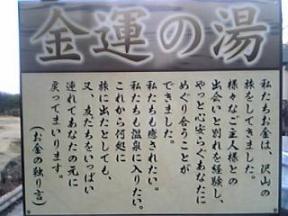 金運の湯
私たちお金は、沢山の
旅をしてきました。
様々なご主人様との
出会いと別れを経験し、
やっと心安らぐあなたに
めぐり会うことが
できました。
私たちも癒されたい。
私たちも温泉に入りたい。
これから何処に
旅に出かけたとしても、
又、友だちをいっぱい
連れてあなたの元に
戻ってまいります。
(お金の独り言)